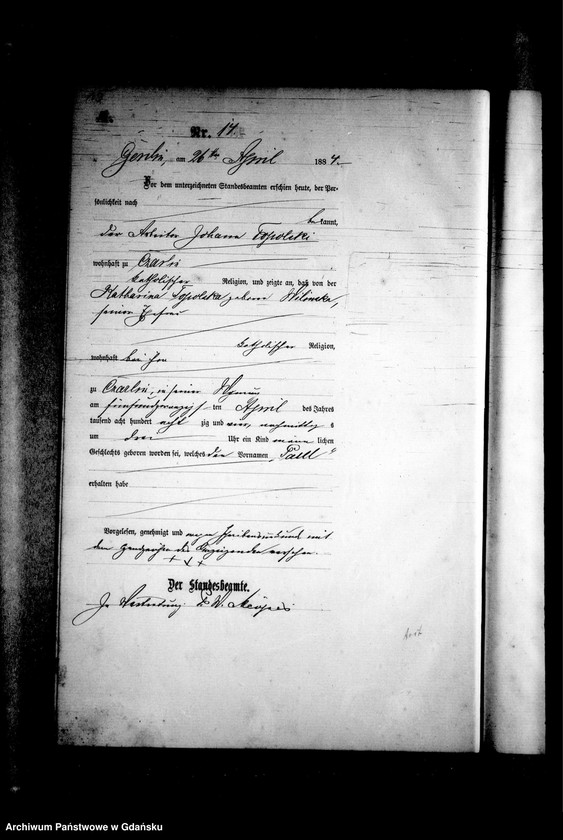 Nr. 14.
am 26ten April 1884.
Vor dem unterzeichneten Standesbeamten erschien heute, der Per-
sönlichkeit nach
bekannt,
der Arbeiter Johann Topolski
wohnhaft zu Czarlin
katholischer Religion, und zeigte an, daß von der
Katharina Topolska geborene
seiner Ehefrau
katholischer Religion,
wohnhaft bei ihm
zu Czarlin, in seiner Wohnung
am fünfundzwanzigsten April des Jahres
tausend acht hundert achtzig und vier, nachmittags
um drei Uhr ein Kind männlichen
Geschlechts geboren worden sei, welches den Vornamen „Paul"
erhalten habe
Vorgelesen, genehmigt und wegen Schreibensunkunde mit
dem Handzeichen des Anzeigenden versehen.
+ + +
Der Standesbeamte.
In Vertretung
Archiwum Państwowe w Gdańsku